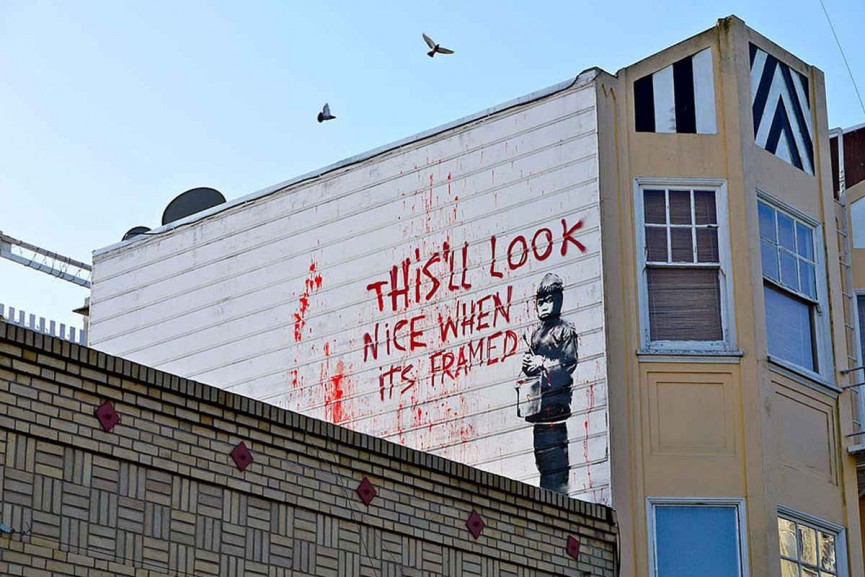 THIS'LL LOOK
NICE WHEN
ITS FRAMED